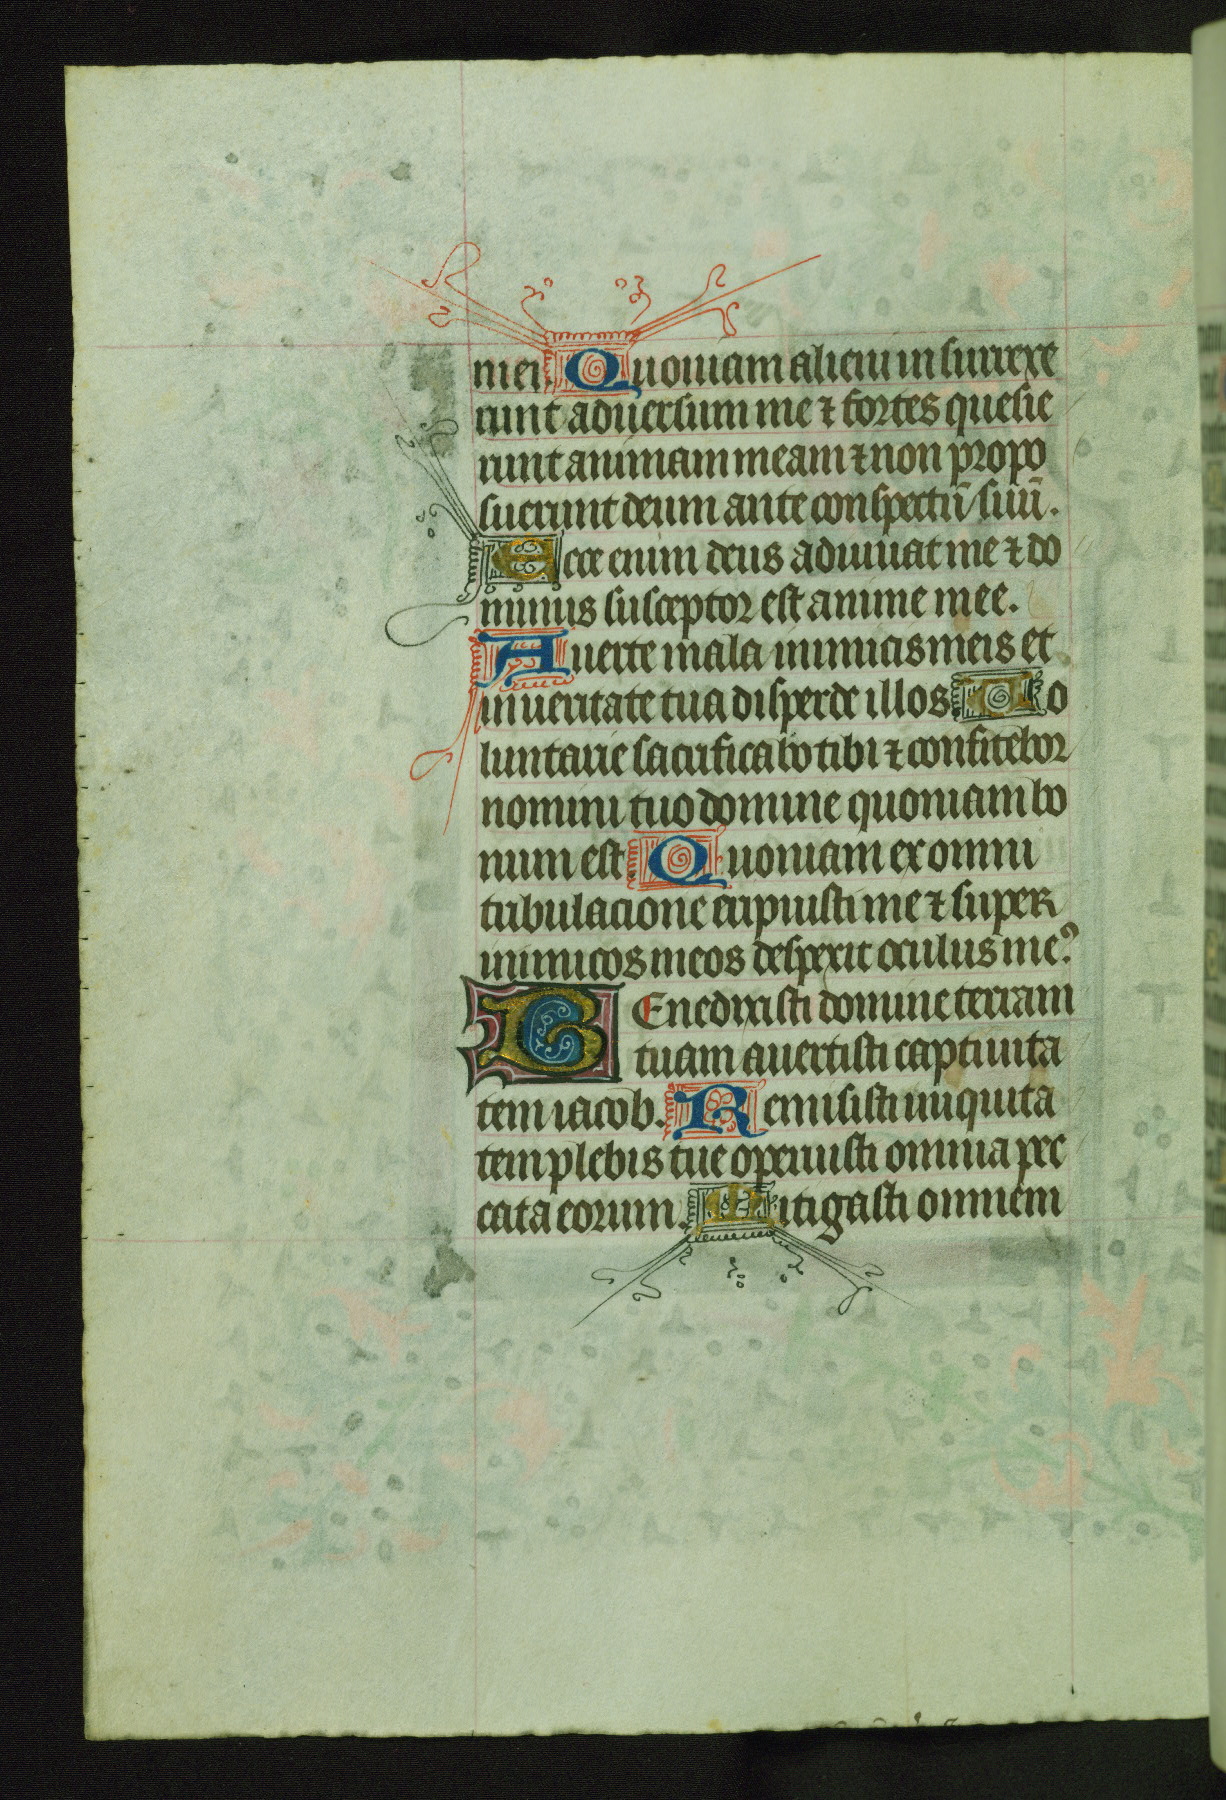 mei. Quoniam alieni insurrexe
runt aduersum me ⁊ fortes quesie
runt animam meam ⁊ non propo
suerunt deum ante conspectū suū.
Ecce enim deus adiuuat me ⁊ do
minus susceptor est anime mee.
Auerte mala inimicis meis et
in ueritate tua disperde illos. Uo
luntarie sacrificabo tibi ⁊ confitebor
nomini tuo domine quoniam bo
num est. Quoniam ex omni
tribulacione eripuisti me ⁊ super
inimicos meos despexit oculus meꝰ
BEnedixisti domine terram
tuam auertisti captiuita
tem iacob. Remisisti iniquita
tem plebis tue operuisti omnia pec
cata eorum. Mitigasti omnem